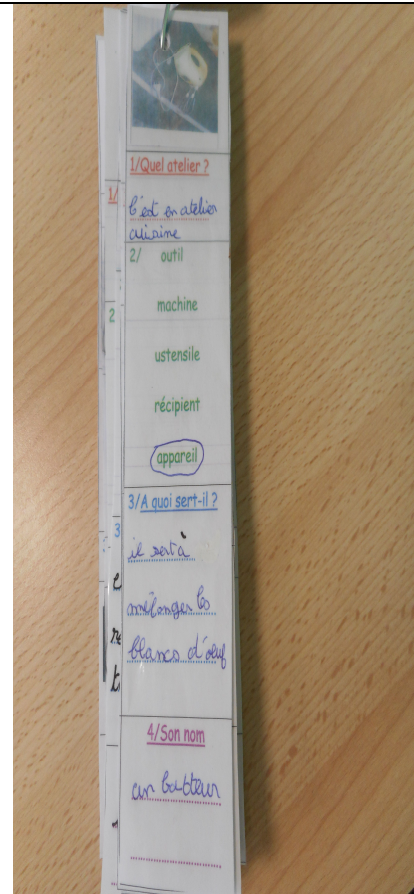 1/Quel atelier ?
C'est en atelier
cuisine
2/ outil
machine
ustensile
récipient
appareil
3/A quoi sert-il ?
il sert à
mélanger les
blancs d'œuf
4/Son nom
un batteur
1/
2
3
e
t